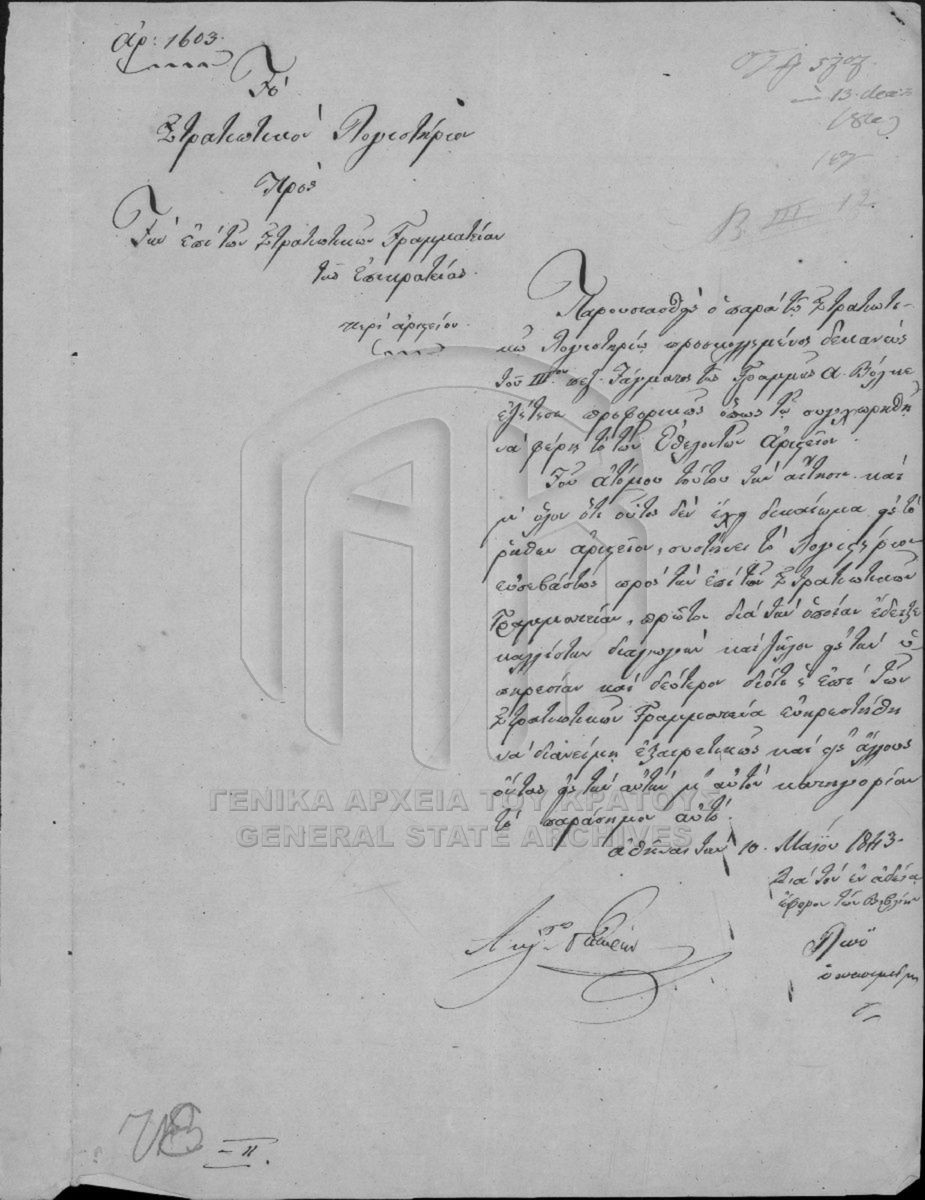 ἀρ: 1603.
Τὸ
Στρατιωτικὸν Λογιστήριον
Πρὸς
Τὴν ἐπὶ τῶν Στρατιωτικῶν Γραμματείαν
τῆς Ἐπικρατείας.
περὶ ἀριστείου.
13
107
B III 12.
Παρουσιασθεὶς ὁ παρὰ τῷ Στρατιωτι-
κῷ Λογιστηρίῳ προσκολλημένος δεκανεὺς
τοῦ IIIου πεζ. Τάγματος τῆς Γραμμῆς Α.
ἐζήτησε προφορικῶς ὅπως τῷ συγχωρηθῇ
νὰ φέρῃ τὸ τῶν Ἐθελοντῶν ἀριστεῖον.
Τοῦ ἀτόμου τούτου τὴν αἴτησιν καὶ
μ' ὅλον ὅτι οὗτος δὲν ἔχει δικαίωμα εἰς τὸ
ῥηθὲν ἀριστεῖον, συστήνει τὸ Λογιστήριον
εὐσεβάστως πρὸς τὴν ἐπὶ τῶν Στρατιωτικῶν
Γραμματείαν, πρῶτον διὰ τὴν ὁποίαν ἔδειξε
καλλίστην διαγωγὴν καὶ ζῆλον εἰς τὴν ὑ-
πηρεσίαν καὶ δεύτερον διότι ἡ ἐπὶ τῶν
Στρατιωτικῶν Γραμματεία εὐηρεστήθη
νὰ διανείμῃ ἐξαιρετικῶς καὶ εἰς ἄλλους
ὄντας εἰς τὴν αὐτὴν μ' αὐτὸν κατηγορίαν
τὸ παράσημον αὐτό.
ΓΕΝΙΚΑ ΑΡΧΕΙΑ ΤΟΥ ΚΡΑΤΟΥΣ
GENERAL STATE ARCHIVES
Ἀθῆναι τὴν 10. Μαΐου 1843.
Διὰ τὸν ἐν ἀδείᾳ
ἔφορον τῶν βιβλίων
II.